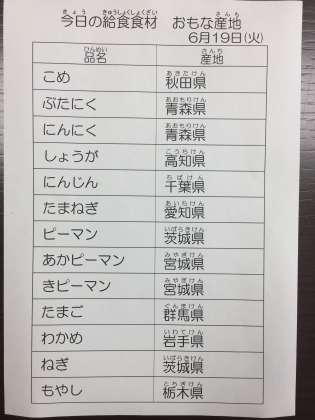 今日の給食食材　おもな産地
6月19日(火)
品名　産地
こめ　秋田県
ぶたにく　青森県
にんにく　青森県
しょうが　高知県
にんじん　千葉県
たまねぎ　愛知県
ピーマン　茨城県
あかピーマン　宮城県
きピーマン　宮城県
たまご　群馬県
わかめ　岩手県
ねぎ　茨城県
もやし　栃木県